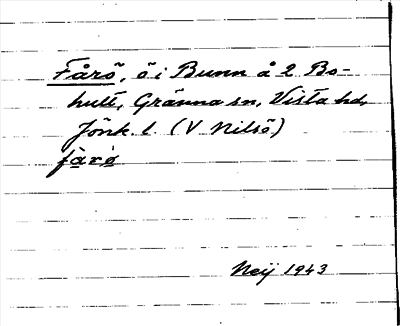 Fårö, ö i Bunn å 2 Bo-
hult, Gränna sn, Vista hd,
Jönk. l. (V Nilsö)
fårö
Neij 1943